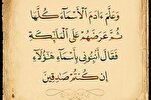 وَعَلَّمَ ءَادَمَ ٱلْأَسْمَآءَ كُلَّهَا
ثُمَّ عَرَضَهُمْ عَلَى ٱلْمَلَـٰٓئِكَةِ
فَقَالَ أَنۢبِـُٔونِى بِأَسْمَآءِ هَـٰٓؤُلَآءِ
إِن كُنتُمْ صَـٰدِقِينَ